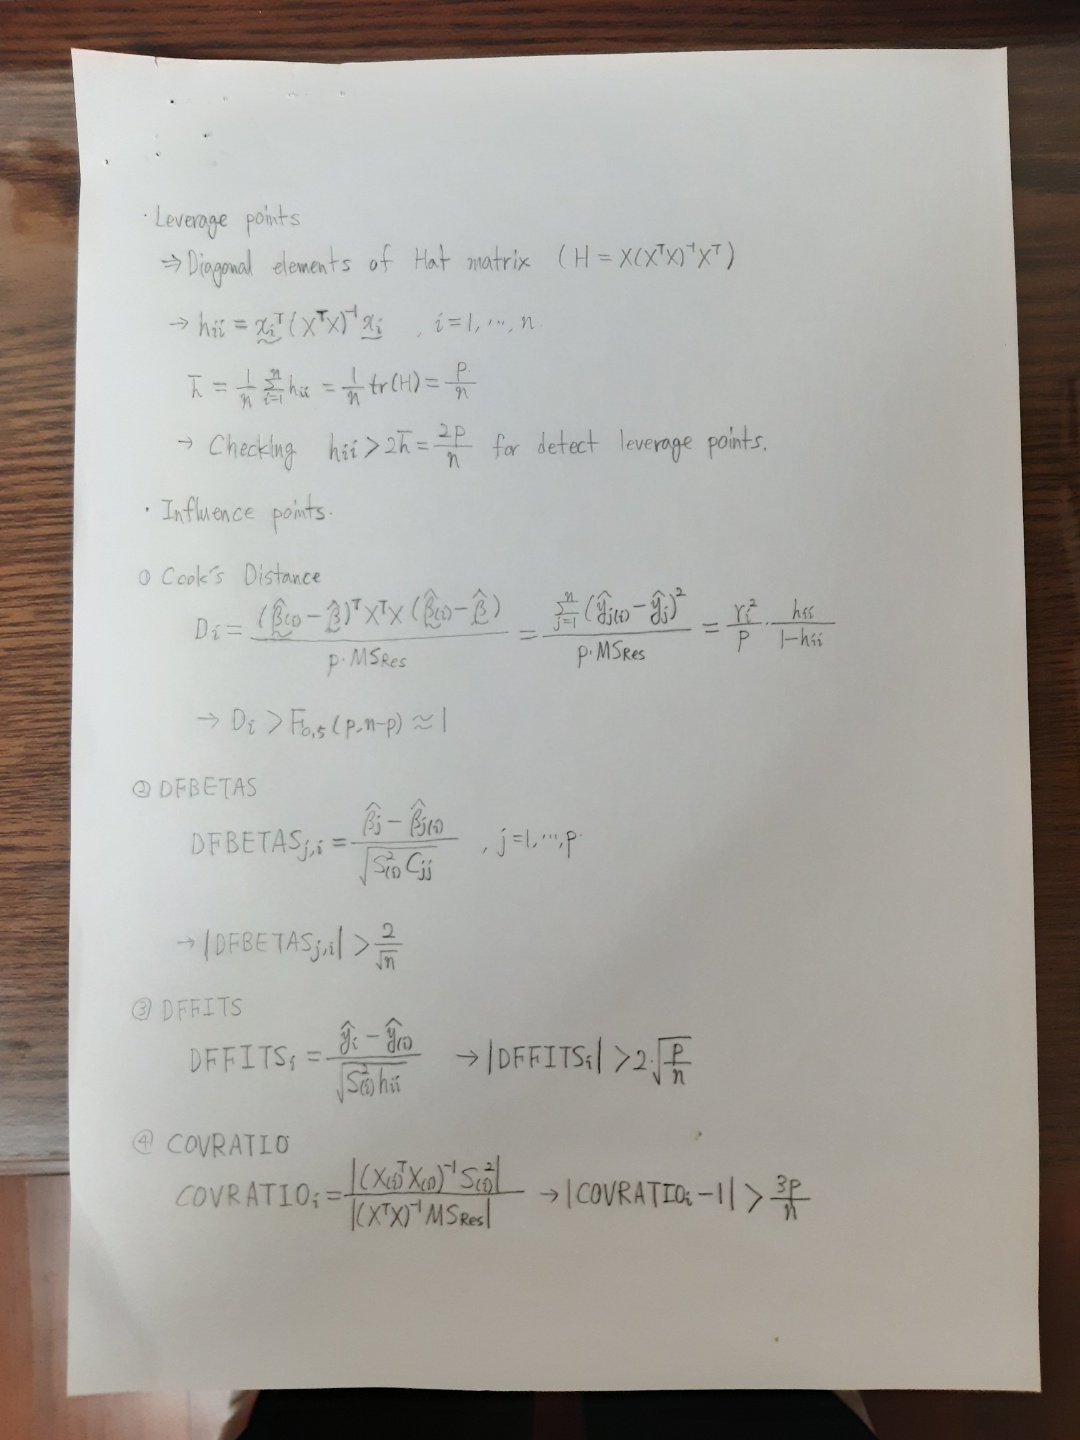 · Leverage points
⇒ Diagonal elements of Hat matrix (H = X(XᵀX)⁻¹Xᵀ)
→ hᵢᵢ = xᵢᵀ(XᵀX)⁻¹xᵢ , i=1, ⋯, n
h̄ = 1/n Σⁿᵢ₌₁ hᵢᵢ = 1/n tr(H) = p/n
→ Checking hᵢᵢ > 2h̄ = 2p/n for detect leverage points.
· Influence points.
① Cook's Distance
Dᵢ = (β̂₍ᵢ₎ - β̂)ᵀXᵀX(β̂₍ᵢ₎ - β̂) / p·MSRes = Σⁿⱼ₌₁(ŷⱼ₍ᵢ₎ - ŷⱼ)² / p·MSRes = rᵢ²/p · hᵢᵢ/(1-hᵢᵢ)
→ Dᵢ > F₀.₅(p, n-p) ≈ 1
② DFBETAS
DFBETASⱼ,ᵢ = (β̂ⱼ - β̂ⱼ₍ᵢ₎) / √(S²₍ᵢ₎Cⱼⱼ) , j=1, ⋯, p.
→ |DFBETASⱼ,ᵢ| > 2/√n
③ DFFITS
DFFITSᵢ = (ŷᵢ - ŷ₍ᵢ₎) / √(S²₍ᵢ₎hᵢᵢ) → |DFFITSᵢ| > 2·√(p/n)
④ COVRATIO
COVRATIOᵢ = |(X₍ᵢ₎ᵀX₍ᵢ₎)⁻¹S₍ᵢ₎²| / |(XᵀX)⁻¹MSRes| → |COVRATIOᵢ - 1| > 3p/n